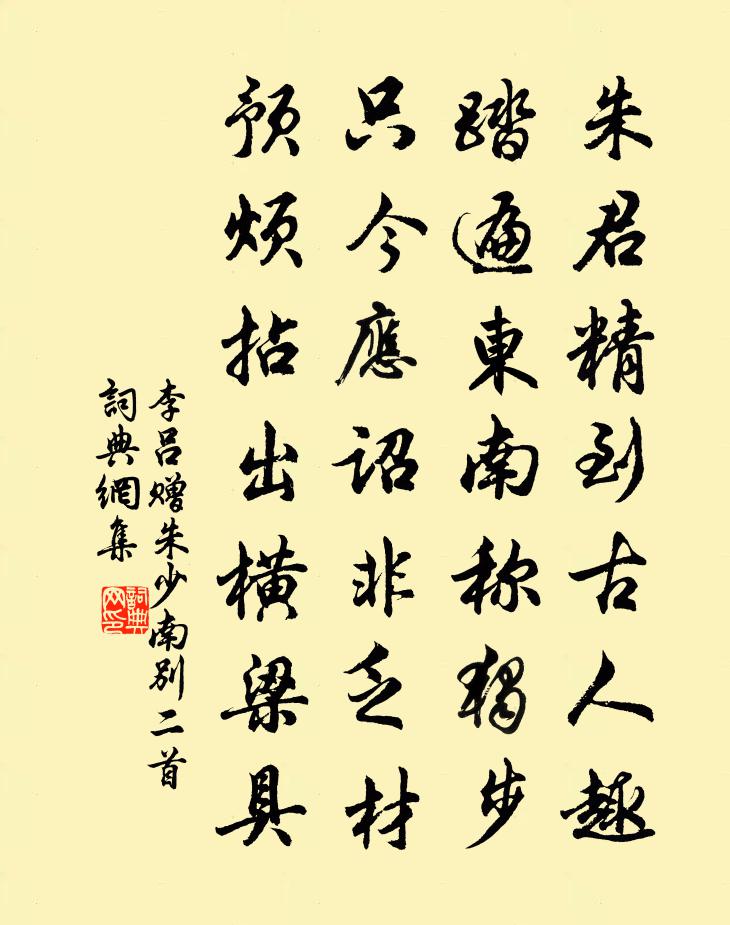 朱君精到古人趣
踏遍東南称獨步
只今應詔非乏材
預煩拈出橫梁具
李吕贈朱少南别二首
詞典網集
詞典网印